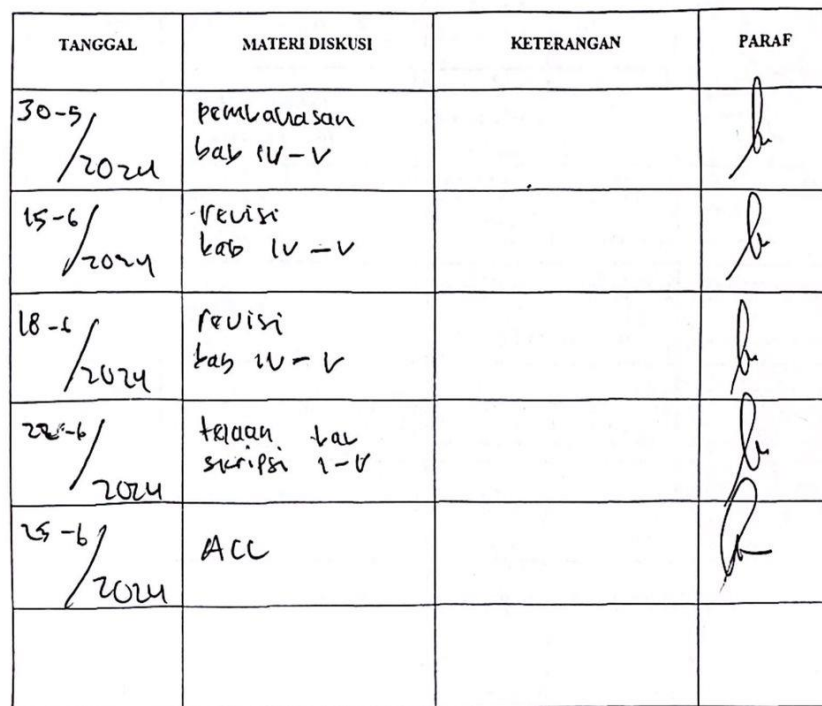 TANGGAL MATERI DISKUSI KETERANGAN PARAF
30-5/2024 pembahasan
bab IV - V
15-6/2024 revisi
bab IV - V
18-6/2024 revisi
bab IV - V
-6/2024
skripsi I-V
25-6/2024 ACC